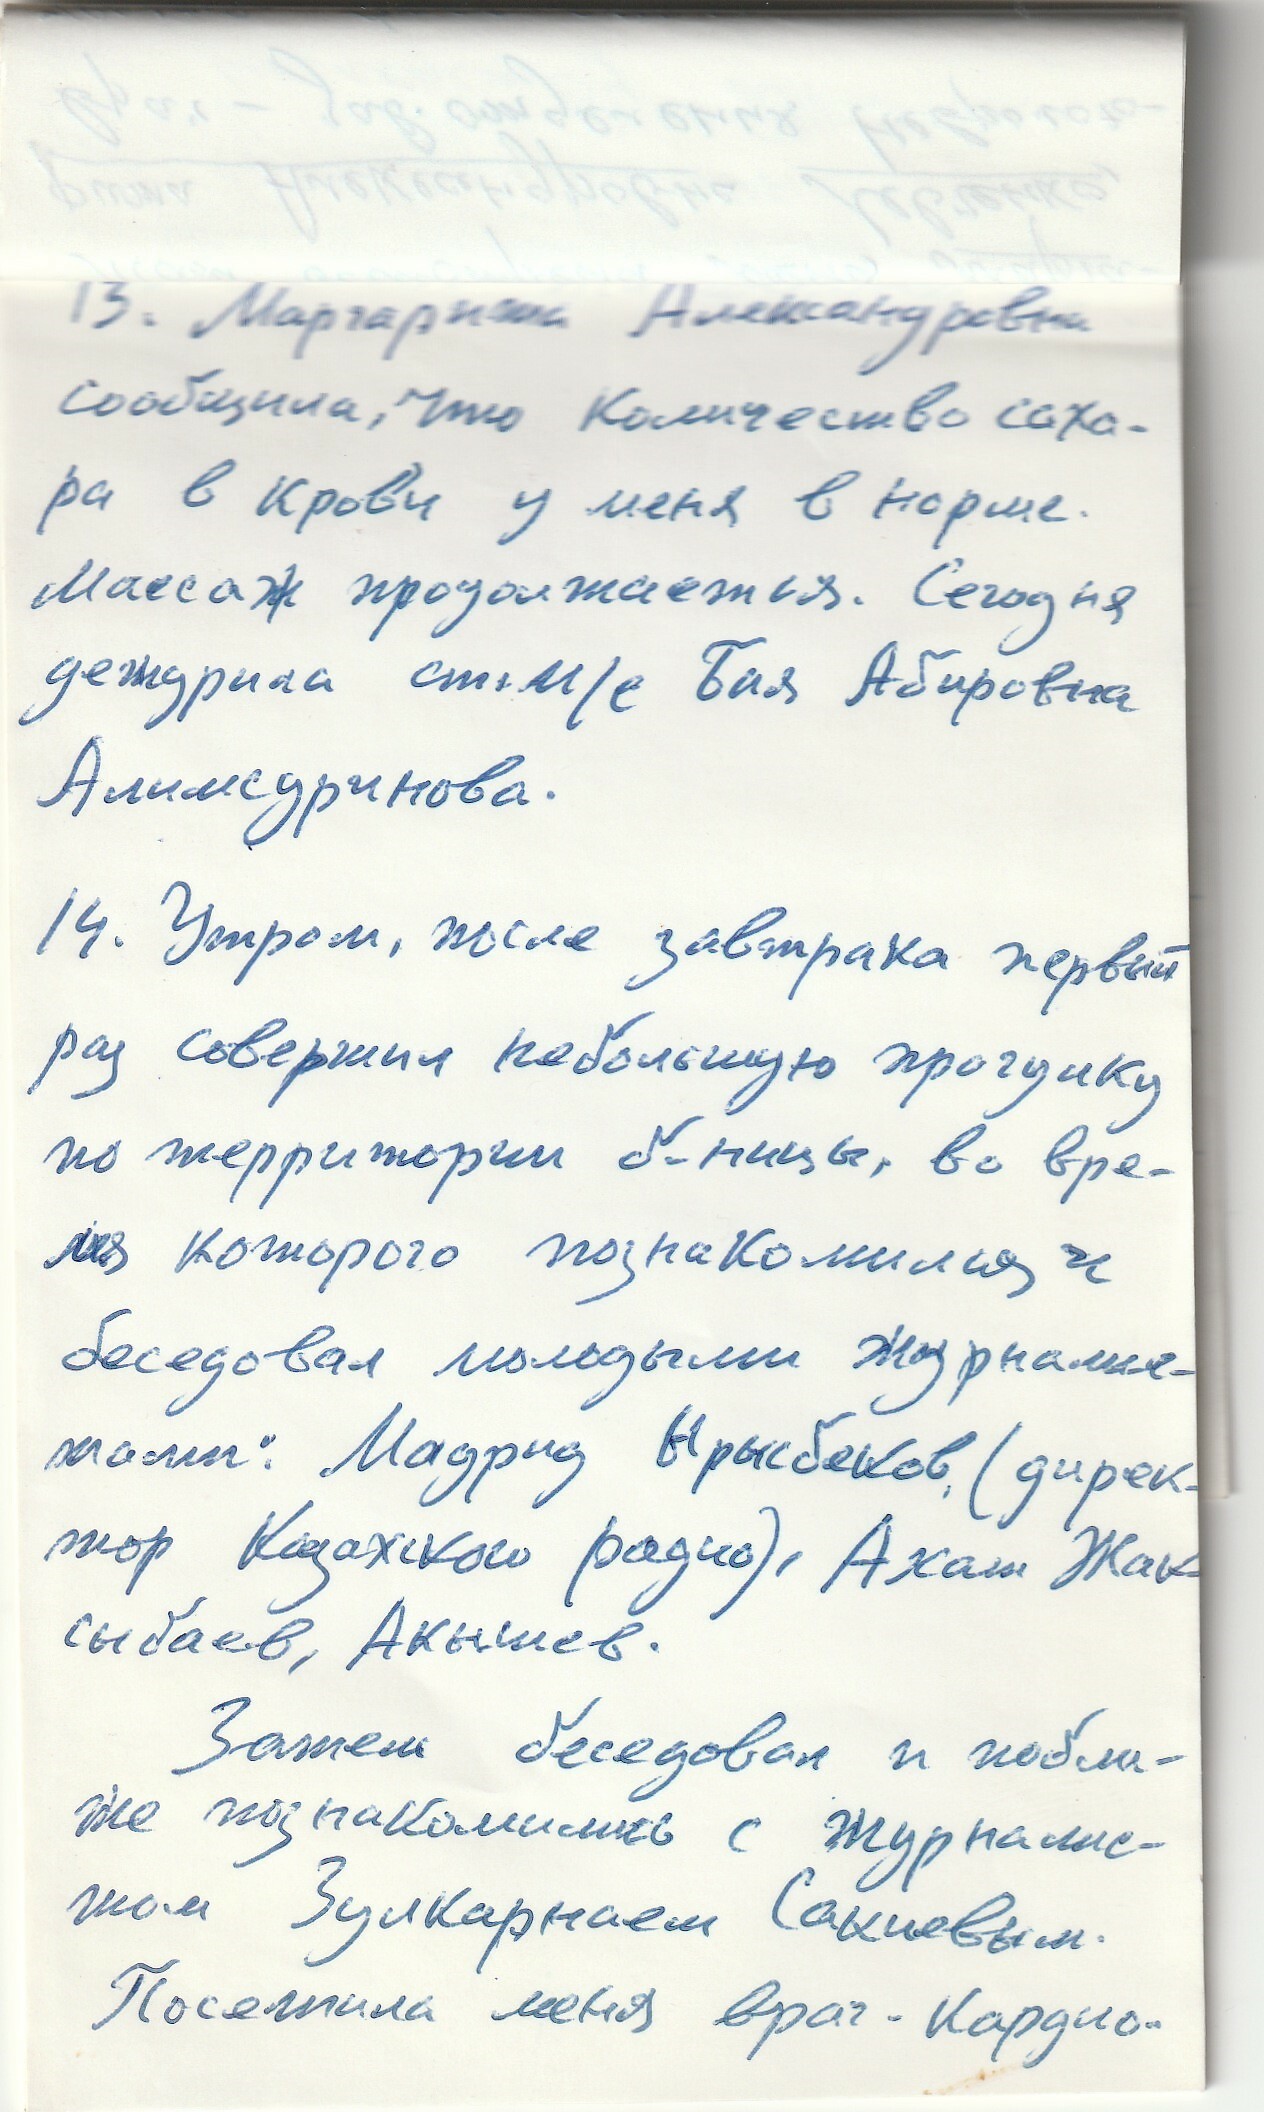 13. Маргарита Александровна
сообщила, что количество саха-
ра в крови у меня в норме.
Массаж продолжается. Сегодня
дежурила ст. м/с Бия Абировна
Алимсуринова.
14. Утром, после завтрака первый
раз совершил небольшую прогулку
по территории б-ницы, во вре-
мя которого познакомился и
беседовал молодыми журналис-
тами: Мадрид Ырысбеков, (дирек-
тор Казахского радио), Ахат Жак-
сыбаев, Акышев.
Затем беседовал и побли-
же познакомились с журналис-
том Зулкарнаем Сакиевым.
Посетила меня врач-кардио-